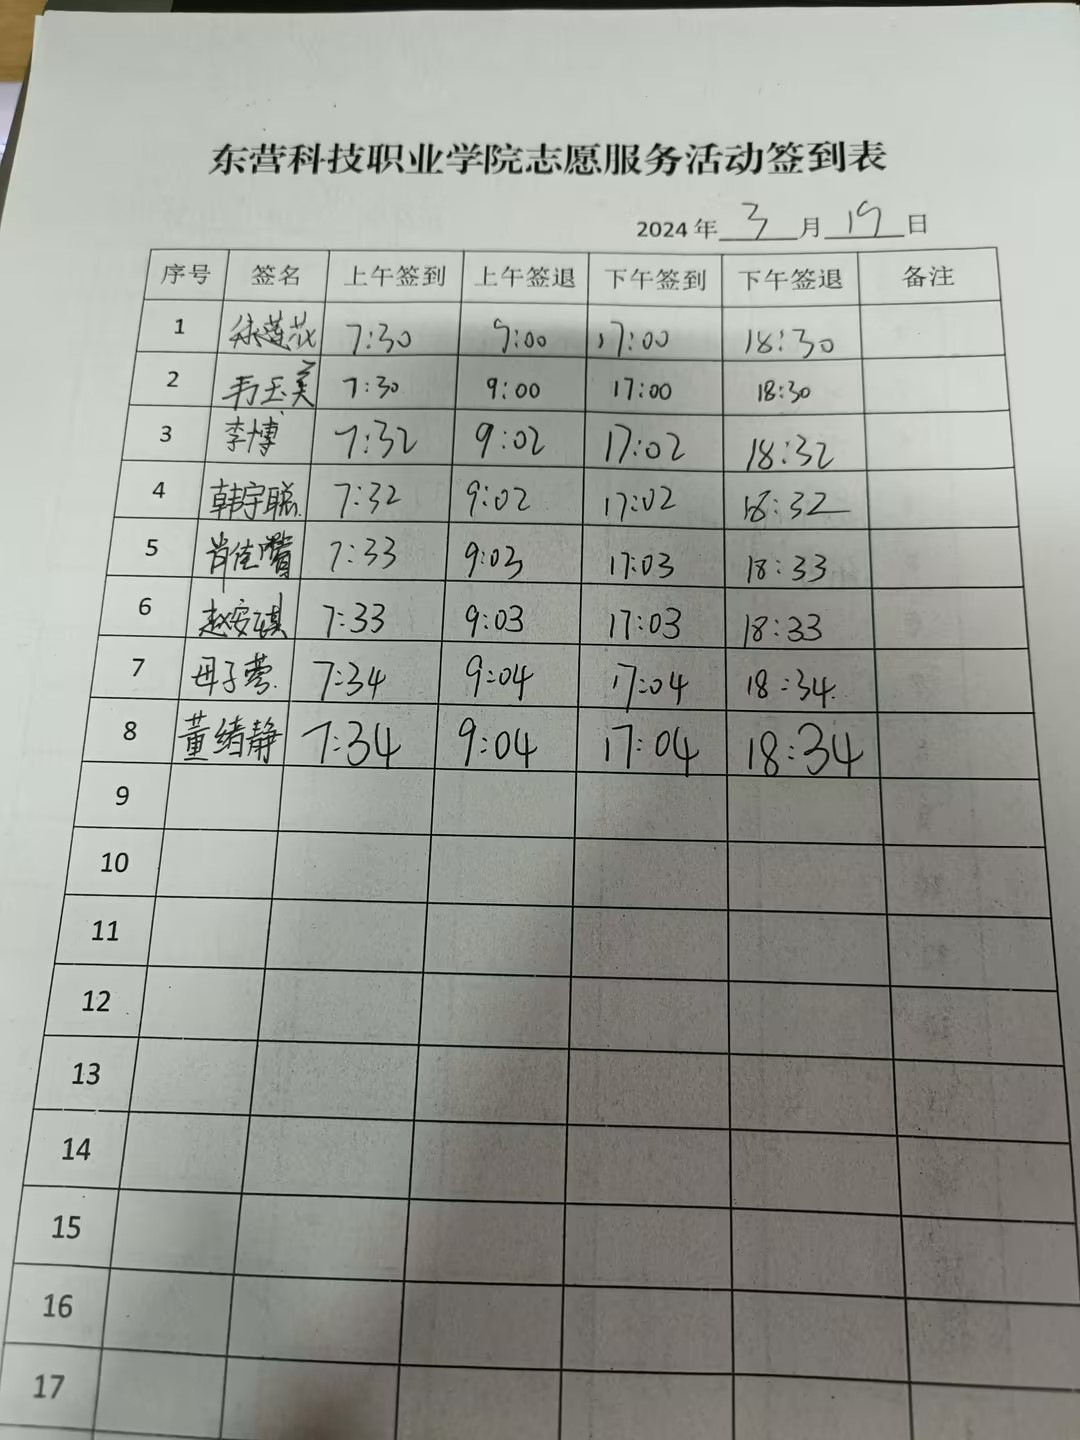 东营科技职业学院志愿服务活动签到表
2024 年 3 月 19 日
序号 签名 上午签到 上午签退 下午签到 下午签退 备注
1 徐莲花 7:30 9:00 17:00 18:30
2 韦玉美 7:30 9:00 17:00 18:30
3 李博 7:32 9:02 17:02 18:32
4 韩宇聪 7:32 9:02 17:02 18:32
5 肖佳 7:33 9:03 17:03 18:33
6 赵安琪 7:33 9:03 17:03 18:33
7 母子莺 7:34 9:04 17:04 18:34
8 董绪静 7:34 9:04 17:04 18:34
9
10
11
12
13
14
15
16
17